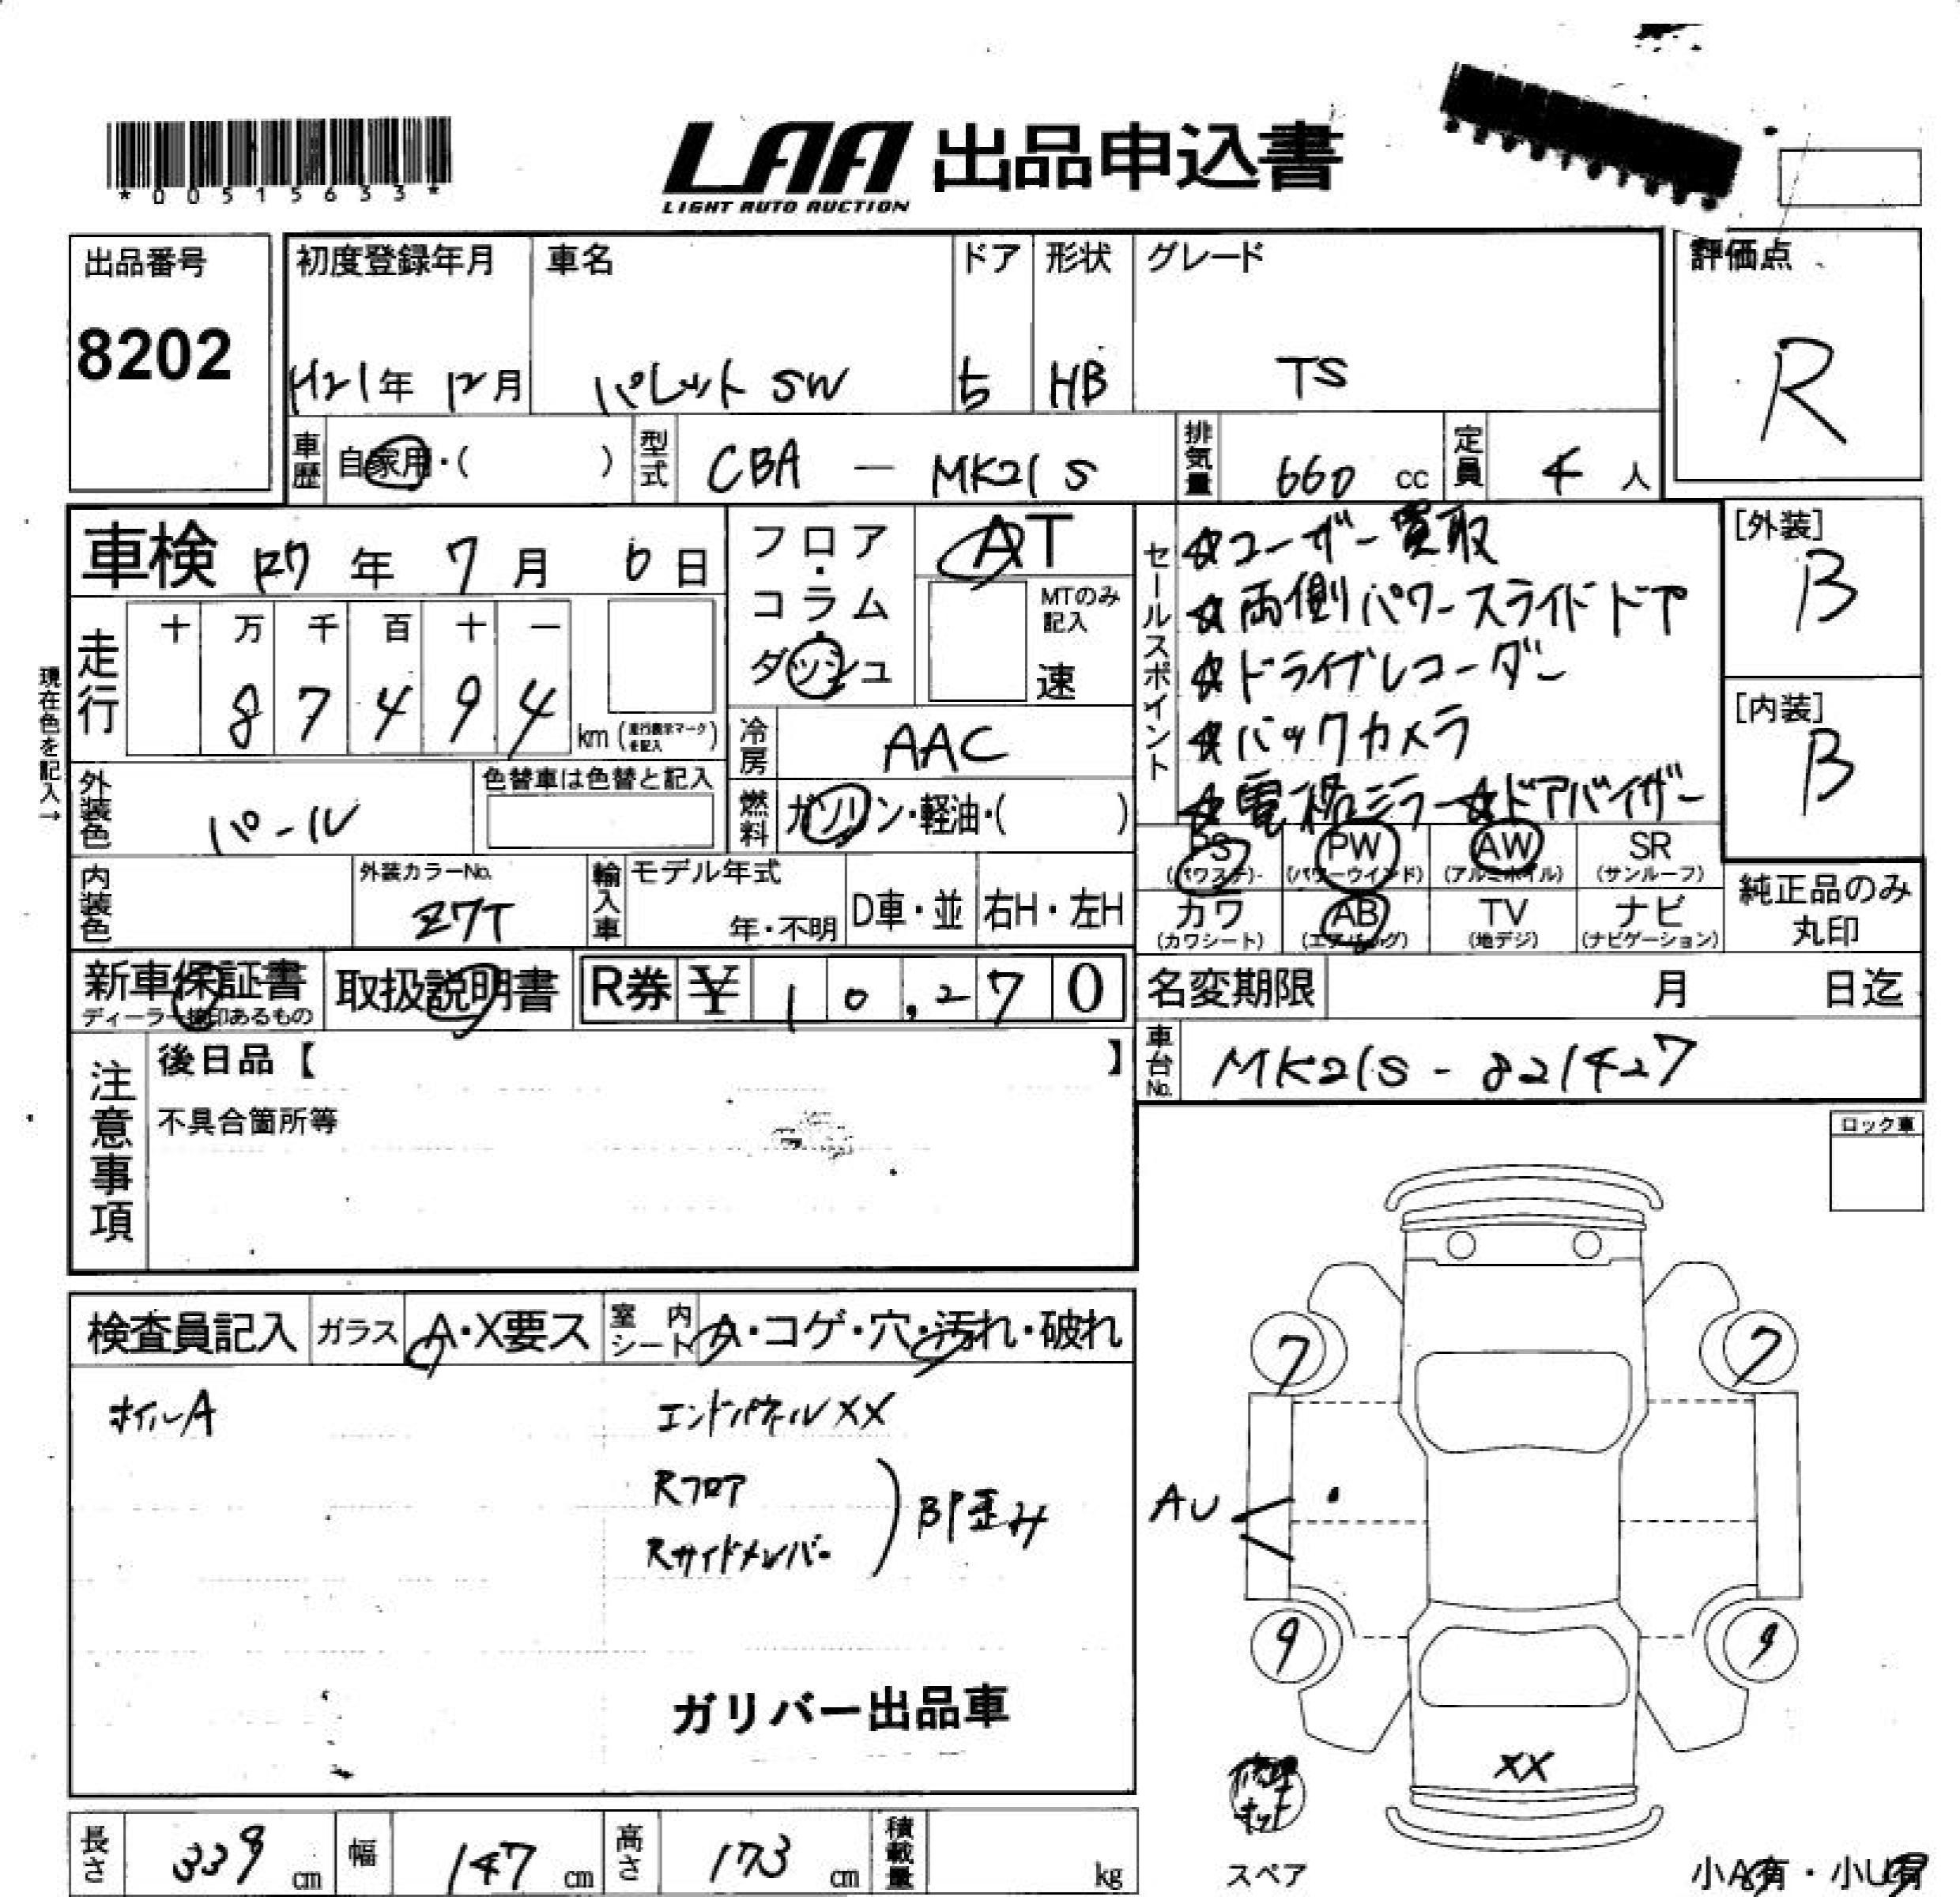 *00515633*
LAA 出品申込書
LIGHT AUTO AUCTION
出品番号
8202
初度登録年月 車名 ドア 形状 グレード
H21年 12月 パレット SW 5 HB TS
評価点
R
車歴 自家用・( ) 型式 CBA — MK21S 排気量 660 cc 定員 4 人
車検 R7 年 7 月 6 日
フロア・コラム・ダッシュ
AT
MTのみ記入
速
セールスポイント
☆ユーザー買取
☆両側パワースライドドア
☆ドライブレコーダー
☆バックカメラ
☆電格ミラー☆ドアバイザー
[外装]
B
[内装]
B
現在色を記入→
走行 十 万 千 百 十 一
8 7 4 9 4 km (走行表示マークを記入)
冷房 AAC
外装色 パール
色替車は色替と記入
燃料 ガソリン・軽油・( )
PS (パワステ) PW (パワーウインド) AW (アルミホイル) SR (サンルーフ)
カワ (カワシート) AB (エアバッグ) TV (地デジ) ナビ (ナビゲーション)
純正品のみ
丸印
内装色 外装カラーNo. Z7T
輸入車 モデル年式 年・不明 D車・並 右H・左H
新車保証書
ディーラー捺印あるもの
取扱説明書
R券 ¥ 10,270
名変期限 月 日迄
車台No. MK21S - 821427
注意事項
後日品【 】
不具合箇所等
ロック車
検査員記入 ガラス A・X要ス 室内シート A・コゲ・穴・汚れ・破れ
ホイルA
エンドパネルXX
Rフロア
Rサイドメンバー
BP歪み
ガリバー出品車
7 7
AU
9 9
XX
修理キット
スペア
小A有・小U有
長さ 339 cm 幅 147 cm 高さ 173 cm 積載量 kg